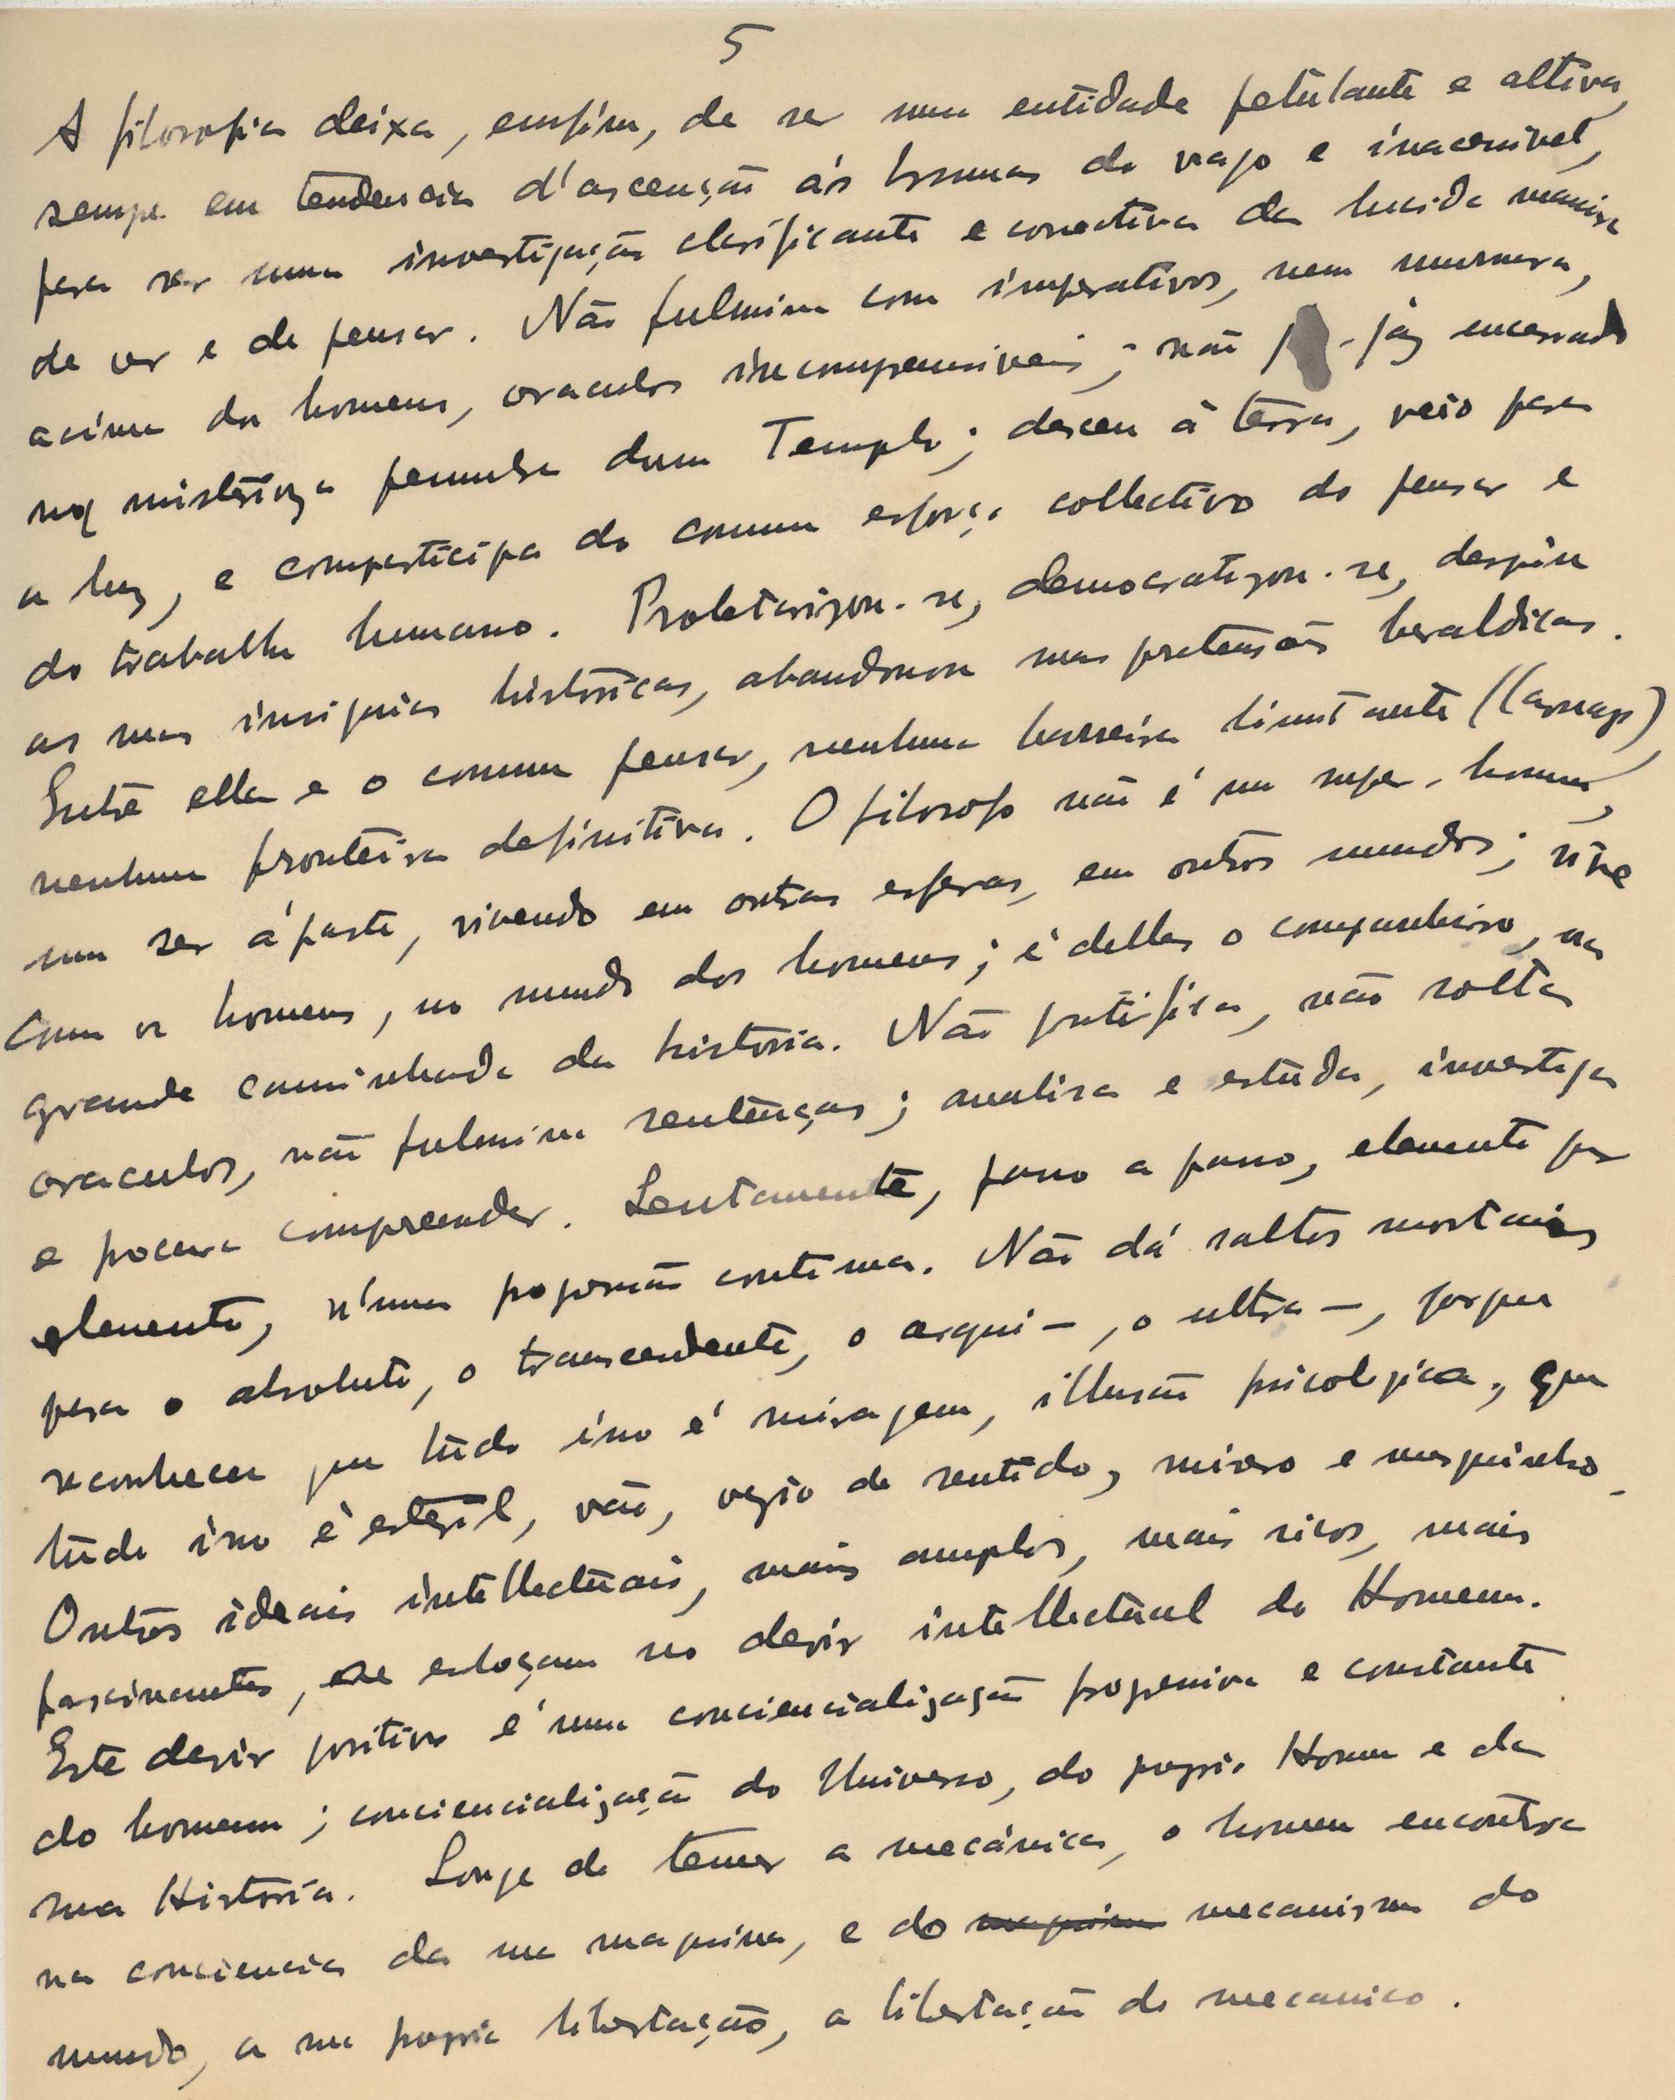 5
A filosofia deixa, emfim, de ser uma entidade petulante e altiva,
sempre em tendencia d'ascenção ás brumas do vago e inacessivel,
para ser uma investigação clarificante e corrective da lucida maneira
de ver e de pensar. Não fulmina com imperativos, nem murmura,
acima dos homens, oraculos incomprensiveis; não jaz encerrada
na misteriosa penumbra dum Templo; desceu á terra, veio para
a luz, e comparticipa do comum esforço collectivo do pensar e
do trabalho humano. Proletarizou-se, democratizou-se, despiu
as suas insignias historicas, abandonou suas pretensões heraldicas.
Entre ella e o comum pensar, nenhuma barreira limitante (Carnap),
nenhuma fronteira definitiva. O filosofo não é um super-homem,
um ser á parte, vivendo em outras esferas, em outros mundos; vive
com os homens, no mundo dos homens; é delles o companheiro, na
grande caminhada da historia. Não pontifica, não solta
oraculos, não fulmina sentenças; analisa e estuda, investiga
e procura compreender. Lentamente, passo a passo, elemento por
elemento, n'uma progressão continua. Não dá saltos mortais
para o absoluto, o transcendente, o arqui-, o ultra-, porque
reconheceu que tudo isso é miragem, illusão psicologica, que
tudo isso é esteril, vão, vazio de sentido, misero e mesquinho.
Outros ideais intellectuais, mais amplos, mais ricos, mais
fascinantes, se esboçam no devir intellectual do Homem.
Este devir positivo é uma conciencialização progressiva e constante
do homem; conciencialização do Universo, do proprio Homem e da
sua Historia. Longe de temer a mecánica, o homem encontra
na conciencia da sua maquina, e do maquina mecanismo do
mundo, a sua propria libertação, a libertação do mecanico.